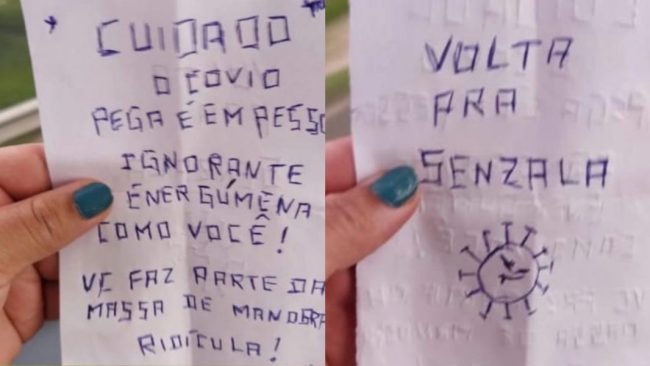 CUIDADO
O COVID
PEGA É EM PESSO
IGNORANTE
ENERGÚMENA
COMO VOCÊ!
VC FAZ PARTE DA
MASSA DE MANOBRA
RIDÍCULA!
VOLTA
PRA
SENZALA